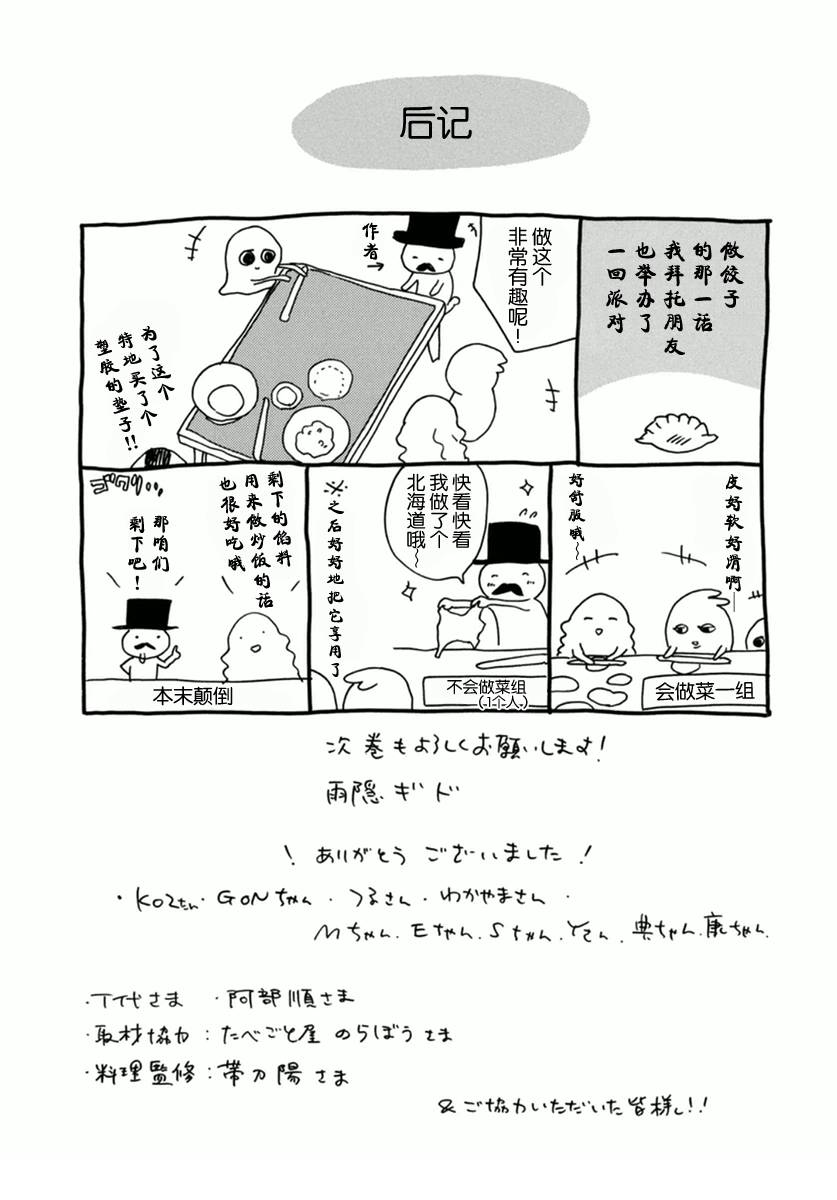 后记
做饺子
的那一话
我拜托朋友
也举办了
一回派对
做这个
非常有趣呢！
作者→
为了这个
特地买了个
塑胶的垫子!!
皮好软好滑啊——
好舒服哦～
会做菜一组
快看快看
我做了个
北海道哦～
※之后好好地把它享用了
不会做菜组
（1个人）
剩下的馅料
用来做炒饭的话
也很好吃哦
那咱们
剩下吧！
ゴクリ…
本末颠倒
次巻もよろしくお願いします!
雨隠ギド
! ありがとう ございました !
・KOZたん・GONちゃん・つるさん・わかやまさん・
Mちゃん.Eちゃん.Sちゃん.Yさん.典ちゃん.康ちゃん.
・T代さま ・阿部順さま
・取材協力：たべごと屋 のらぼうさま
・料理監修：帯刀陽さま
&ご協力いただいた皆様し!!